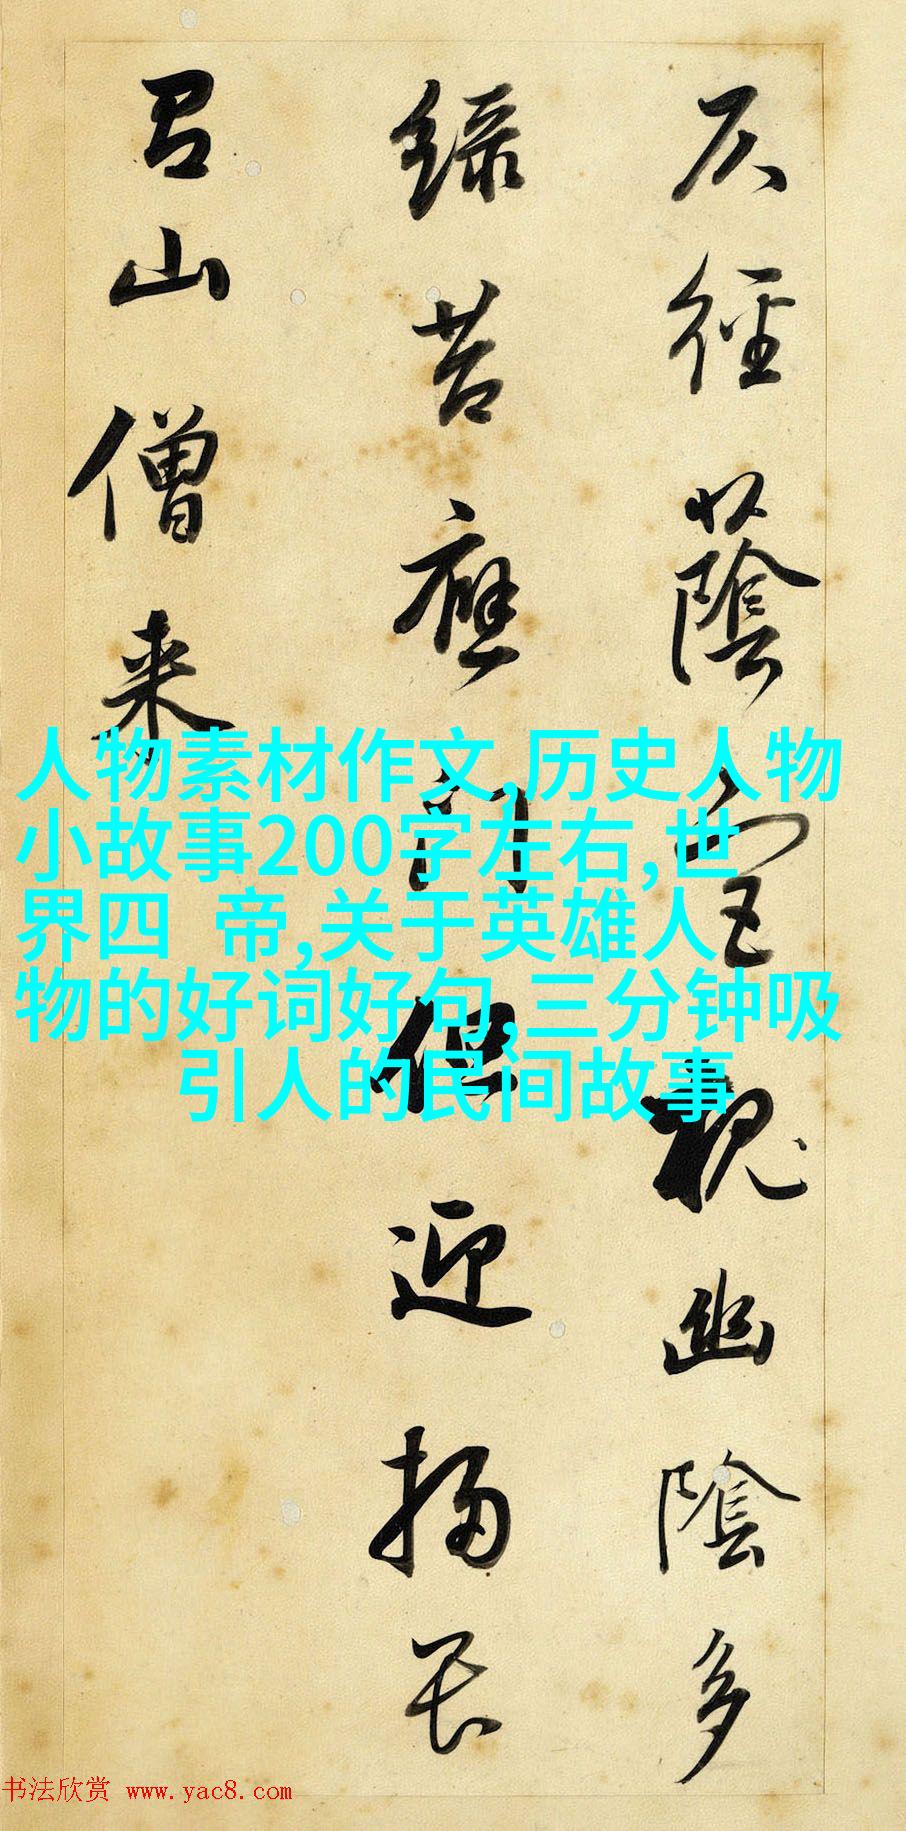 仄徑蔭宮槐幽陰多
綠苔應門但迎掃畏
有山僧来
人物素材作文,历史人物
小故事200字左右,世
界四 帝,关于英雄人
物的好词好句,三分钟吸
引人的民间故事
书法欣赏 www.yac8.com